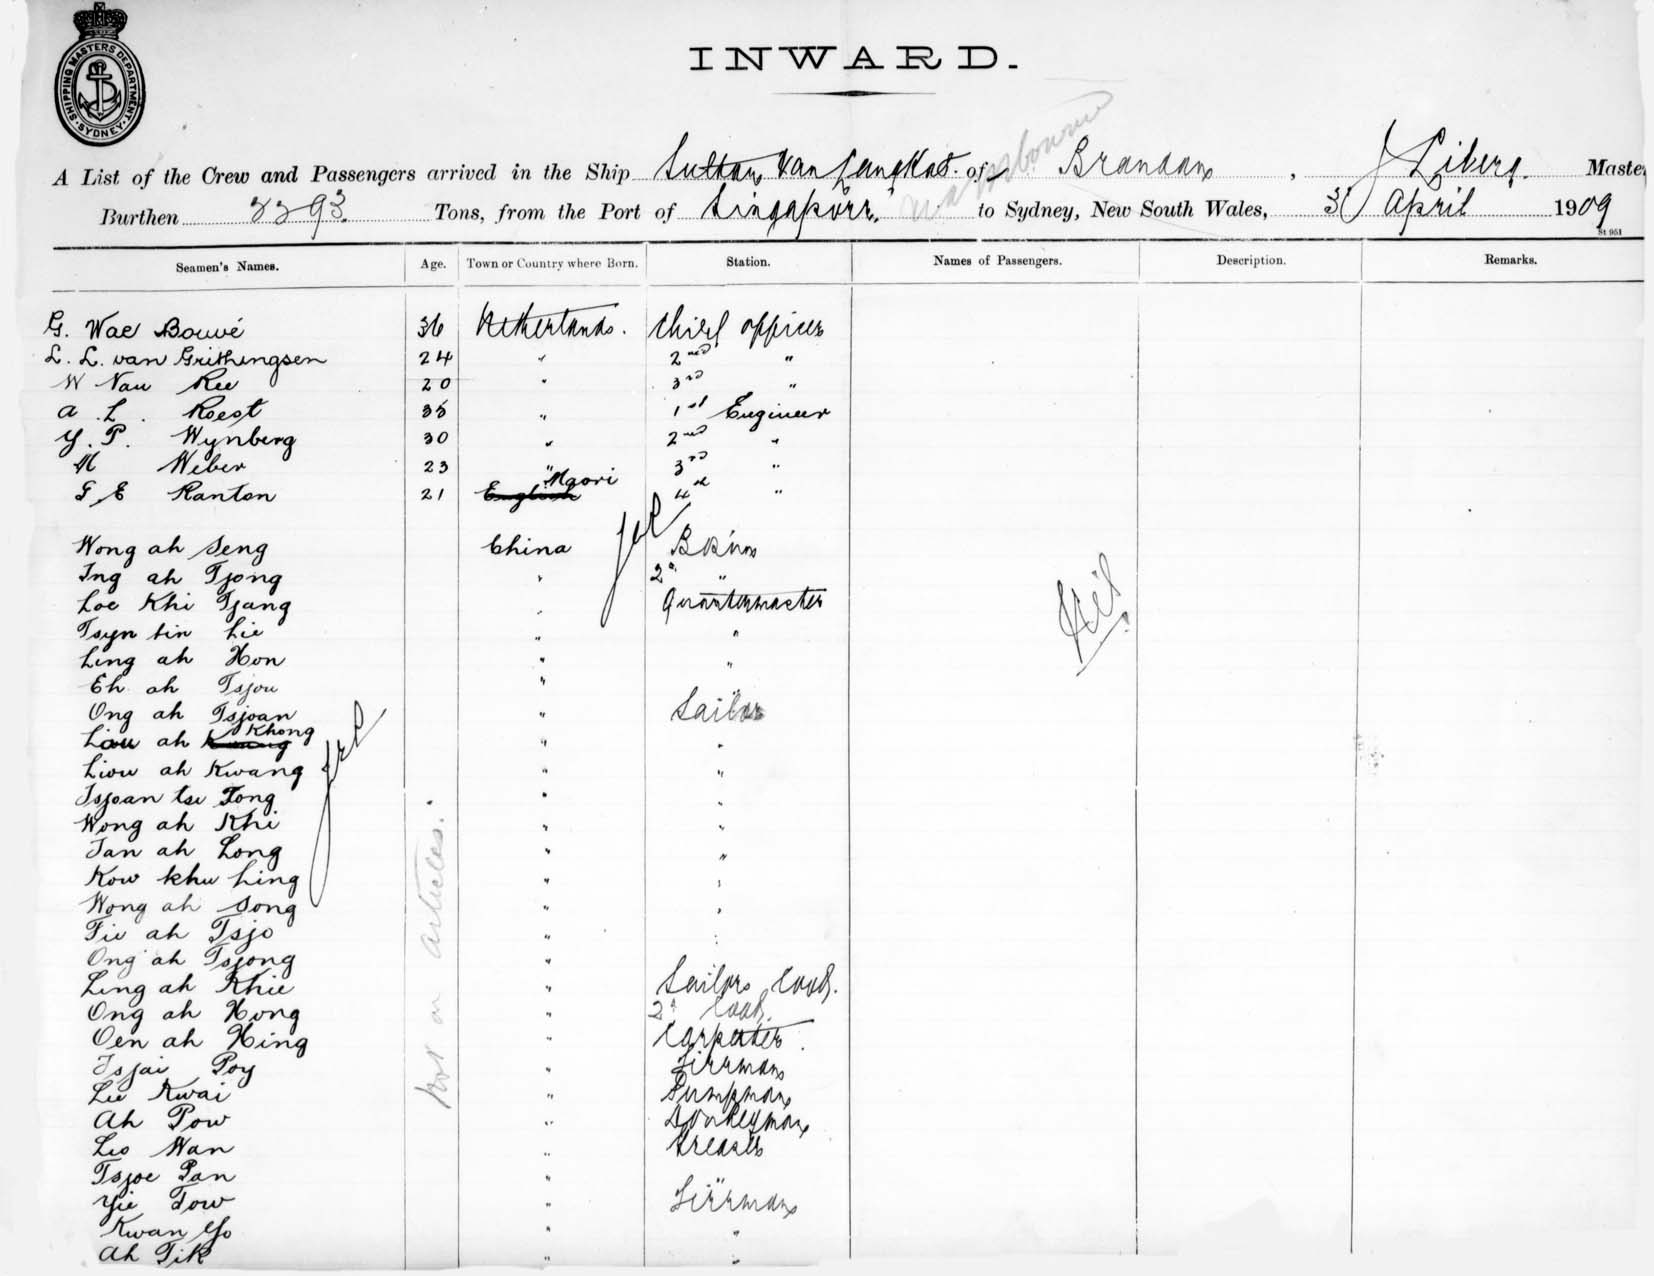 SHIPPING MASTERS DEPARTMENT. SYDNEY.
INWARD.
A List of the Crew and Passengers arrived in the Ship Sultan Van Langkat of Brandan, J Liberg. Master,
Burthen Tons, from the Port of Singapore, to Sydney, New South Wales, 30 April 1909
St 951
Seamen's Names. Age. Town or Country where Born. Station. Names of Passengers. Description. Remarks.
G. Wae Bouvé 36 Netherlands. Chief officer
L. L. van Grithengsen 24 " 2nd "
W Van Ree 20 " 3rd "
A. L. Roest 35 " 1st Engineer
Y. P. Wynberg 30 " 2nd "
M Weber 23 " 3rd "
G E Ranton 21 English Maori 4th "
Wong ah Seng China
Ing ah Tjong " 2nd "
Loe Khi Tjang " Quartermaster
Tsyn tin Lie " "
Ling ah Hon " "
Eh ah Tsjou "
Ong ah Tsjoan " Sailor
Liau ah Khong " "
Liow ah Kwang " "
Tsjoan tse Tong " "
Wong ah Khi " "
Tan ah Long " "
Kow khu Ling " "
Wong ah Song " "
Tie ah Tsjo " "
Ong ah Tsjong "
Ling ah Khie " Sailors Cook.
Ong ah Hong " 2nd Cook.
Oen ah Hing " Carpenter.
Tsjai Poy " Fireman
Lee Kwai " Pumpman
Ah Pow " Donkeyman
Leo Wan " Greaser
Tsjoe Pan " "
Yie Tow " Fireman
Kwan Yo " "
Ah Tik " "
Not on articles.
Nil